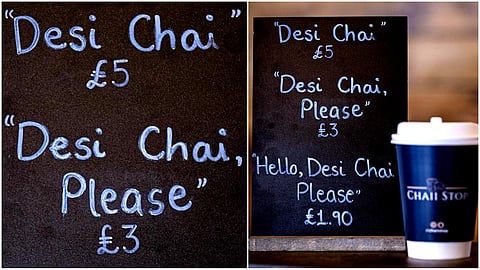 "Desi Chai"
£5
"Desi Chai,
Please"
£3
"Desi Chai"
£5
"Desi Chai,
Please"
£3
"Hello, Desi Chai
Please"
£1.90
CHAII STOP